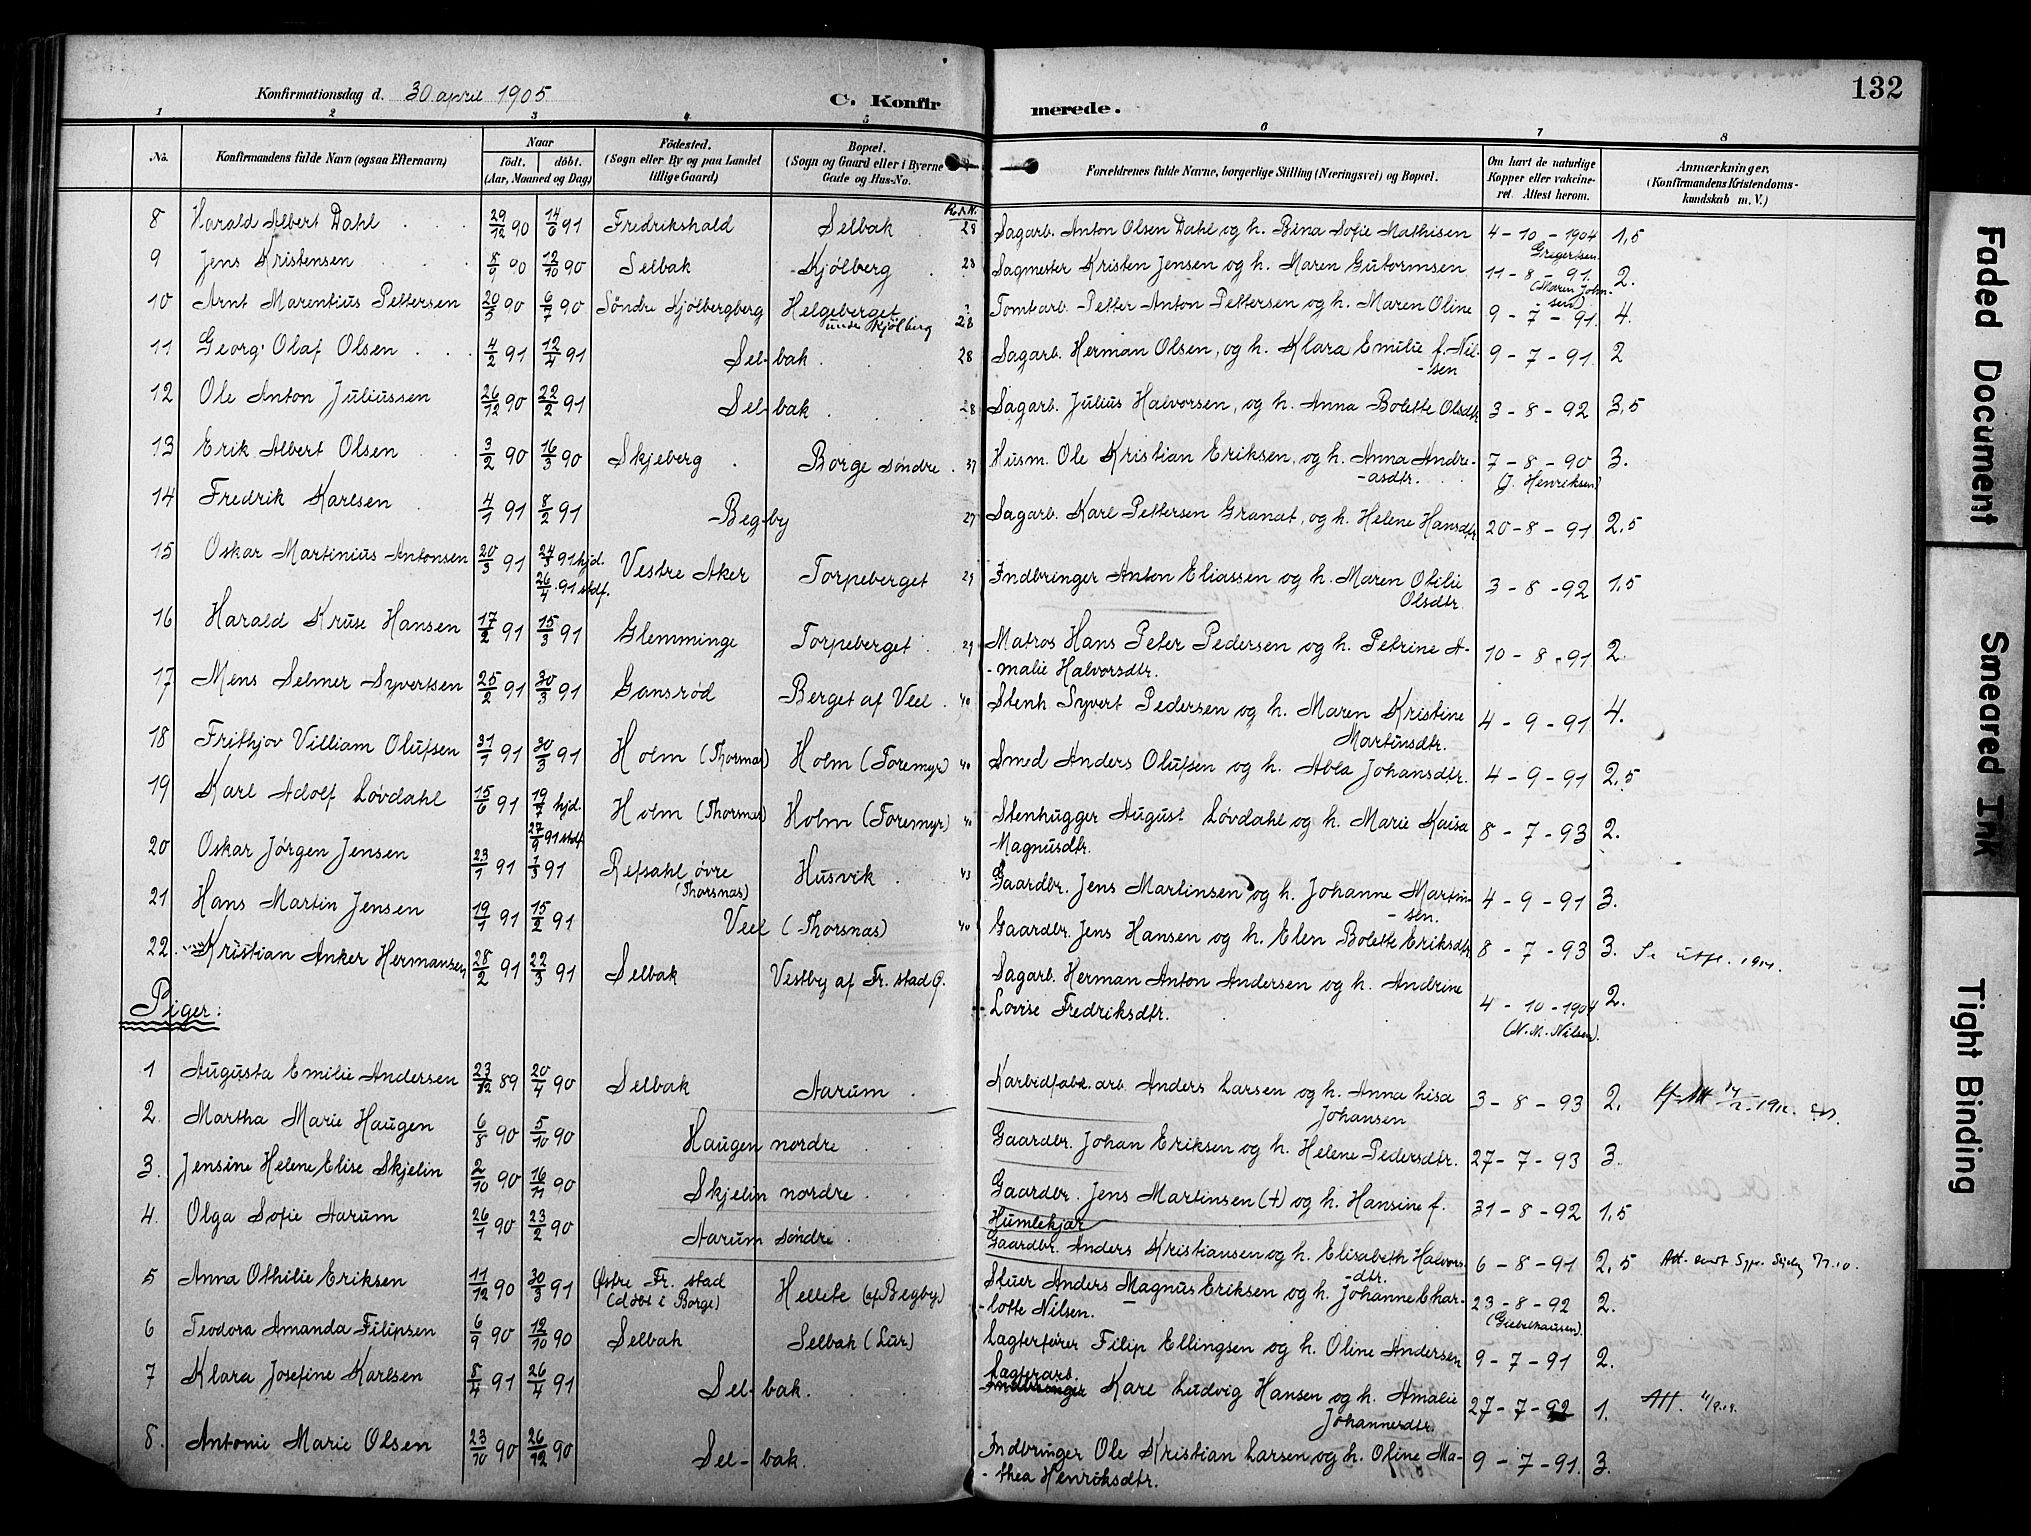 Konfirmationsdag d. 30 april 1905.
C. Konfir merede.
132
1 2 3 4 5 6 7 8
No. Konfirmandens fulde Navn (ogsaa Efternavn) Naar födt. döbt. (Aar, Maaned og Dag) Födested. (Sogn eller By og paa Landet tillige Gaard) Bopæl. (Sogn og Gaard eller i Byerne Gade og Hus-No. Forældrenes fulde Navne, borgerlige Stilling (Næringsvei) og Bopæl. Om havt de naturlige Kopper eller vaccineret. Attest herom. Anmærkninger, (Konfirmandens Kristendomskundskab m. V.)
8 Harald Albert Dahl 29/12 90 14/6 91 Fredrikshald Selbak 28 Sagarb. Anton Olsen Dahl og h. Bina Sofie Mathisen 4-10-1904 Gregertsen 1,5
9 Jens Kristensen 8/9 90 12/10 90 Selbak Kjölberg 28 Sagmester Kristen Jensen og h. Maren Gutormsen 11-8-91. (Maren Johnsen) 2.
10 Arnt Marentius Pettersen 20/5 90 6/7 90 Söndre Kjölbergberg Helgeberget under Kjölberg 28 Tomtarb. Petter Anton Pettersen og h. Maren Oline 9-7-91. 4.
11 Georg Olaf Olsen 4/2 91 12/4 91 Sel-bak 28 Sagarb. Herman Olsen, og h. Klara Emilie f. Nil-
-sen 9-7-91. 2
12 Ole Anton Juliussen 26/12 90 22/2 91 Sel-bak 28 Sagarb. Julius Halvorsen, og h. Anna Bolette Olsdtr 3-8-92 3,5
13 Erik Albert Olsen 3/2 90 16/3 90 Skjeberg Borge söndre 37 Husm. Ole Kristian Eriksen, og h. Anna Andre-
-asdtr. 7-8-90 (J. Henriksen) 3.
14 Fredrik Karlsen 4/1 91 8/2 91 Begby 27 Sagarb. Karl Pettersen Granat, og h. Helene Hansdtr 20-8-91 2,5
15 Oskar Martinius Antonsen 20/3 91 24/3 91 hjd. 26/4 91 stdf. Vestre Aker Torpeberget 29 Indbringer Anton Eliassen og h. Maren Otilie
Olsdtr. 3-8-92 1,5
16 Harald Kruse Hansen 17/2 91 15/3 91 Glemminge Torpeberget 29 Matros Hans Peter Pedersen og h. Petrine A-
-malie Halvorsdtr. 10-8-91 2.
17 Mens Selmer Syvertsen 25/2 91 30/3 91 Gansröd Berget af Veel 40 Stenh. Syvert Pedersen og h. Maren Kristine
Martinsdtr. 4-9-91 4.
18 Frithjov Villiam Olufsen 31/1 91 30/3 91 Holm (Thorsnæs) Holm (Foremyr) 40 Smed Anders Olufsen og h. Abla Johansdtr. 4-9-91 2,5
19 Karl Adolf Lövdahl 15/6 91 19/7 hjd. 27/9 91 stdf. Holm (Thorsnes) Holm (Foremyr) 40 Stenhugger August Lövdahl og h. Marie Kaisa
Magnusdtr. 8-7-93 2.
20 Oskar Jörgen Jensen 23/1 91 1/3 91 Refsahl övre (Thorsnas) Husvik 43 Gaardbr. Jens Martinsen og h. Johanne Martin-
-sen. 4-9-91 3.
21 Hans Martin Jensen 19/1 91 15/2 91 Veel (Thorsnas) 40 Gaardbr. Jens Hansen og h. Elen Bolette Eriksdtr 8-7-93 3. Se utfl. 1914.
22 Kristian Anker Hermansen 28/2 91 22/3 91 Selbak Vestby af Fr. stad Sagarb. Herman Anton Andersen og h. Andrine
Lovise Fredriksdtr. 4-10-1904 (N. M. Nilsen). 2.
Piger:
1 Augusta Emilie Andersen 23/12 89 20/4 90 Selbak Aarum Karbidfabr.arb. Anders Larsen og h. Anna Lisa
Johansen 3-8-93 2.
2. Martha Marie Haugen 6/8 90 5/10 90 Haugen nordre Gaardbr. Johan Eriksen og h. Helene Pedersdtr. 27-7-93 3.
3. Jensine Helene Elise Skjelin 2/10 90 16/11 90 Skjelin nordre Gaardbr. Jens Martinsen (+) og h. Hansine f.
Humlekjær 31-8-92 1,5
4. Olga Sofie Aarum 26/1 90 23/2 90 Aarum söndre Gaardbr. Anders Kristiansen og h. Elisabeth Halvors-
-dtr. 6-8-91 2,5
5 Anna Othilie Eriksen 11/12 90 30/3 91 Östre Fr. stad (döbt i Borge) Hellete (af Begby) Stuer Anders Magnus Eriksen og h. Johanne Char-
-lotte Nilsen. 23-8-92 (Giebelhausen). 2.
6 Teodora Amanda Filipsen 6/9 90 12/10 90 Selbak Selbak (Lur) Lagterförer Filip Ellingsen og h. Oline Andersen 9-7-91 2.
7 Klara Josefine Karlsen 8/4 91 26/4 91 Sel-bak. Lagterarb.
Indbringer Karl Ludvig Hansen og h. Amalie
Johannesdtr. 27-7-92 1. Att.
8. Antonie Marie Olsen 23/10 90 26/12 90 Sel-bak. Indbringer Ole Kristian Larsen og h. Oline Ma-
-thea Henriksdtr. 9-7-91. 3.
Faded Document
Smeared Ink
Tight Binding